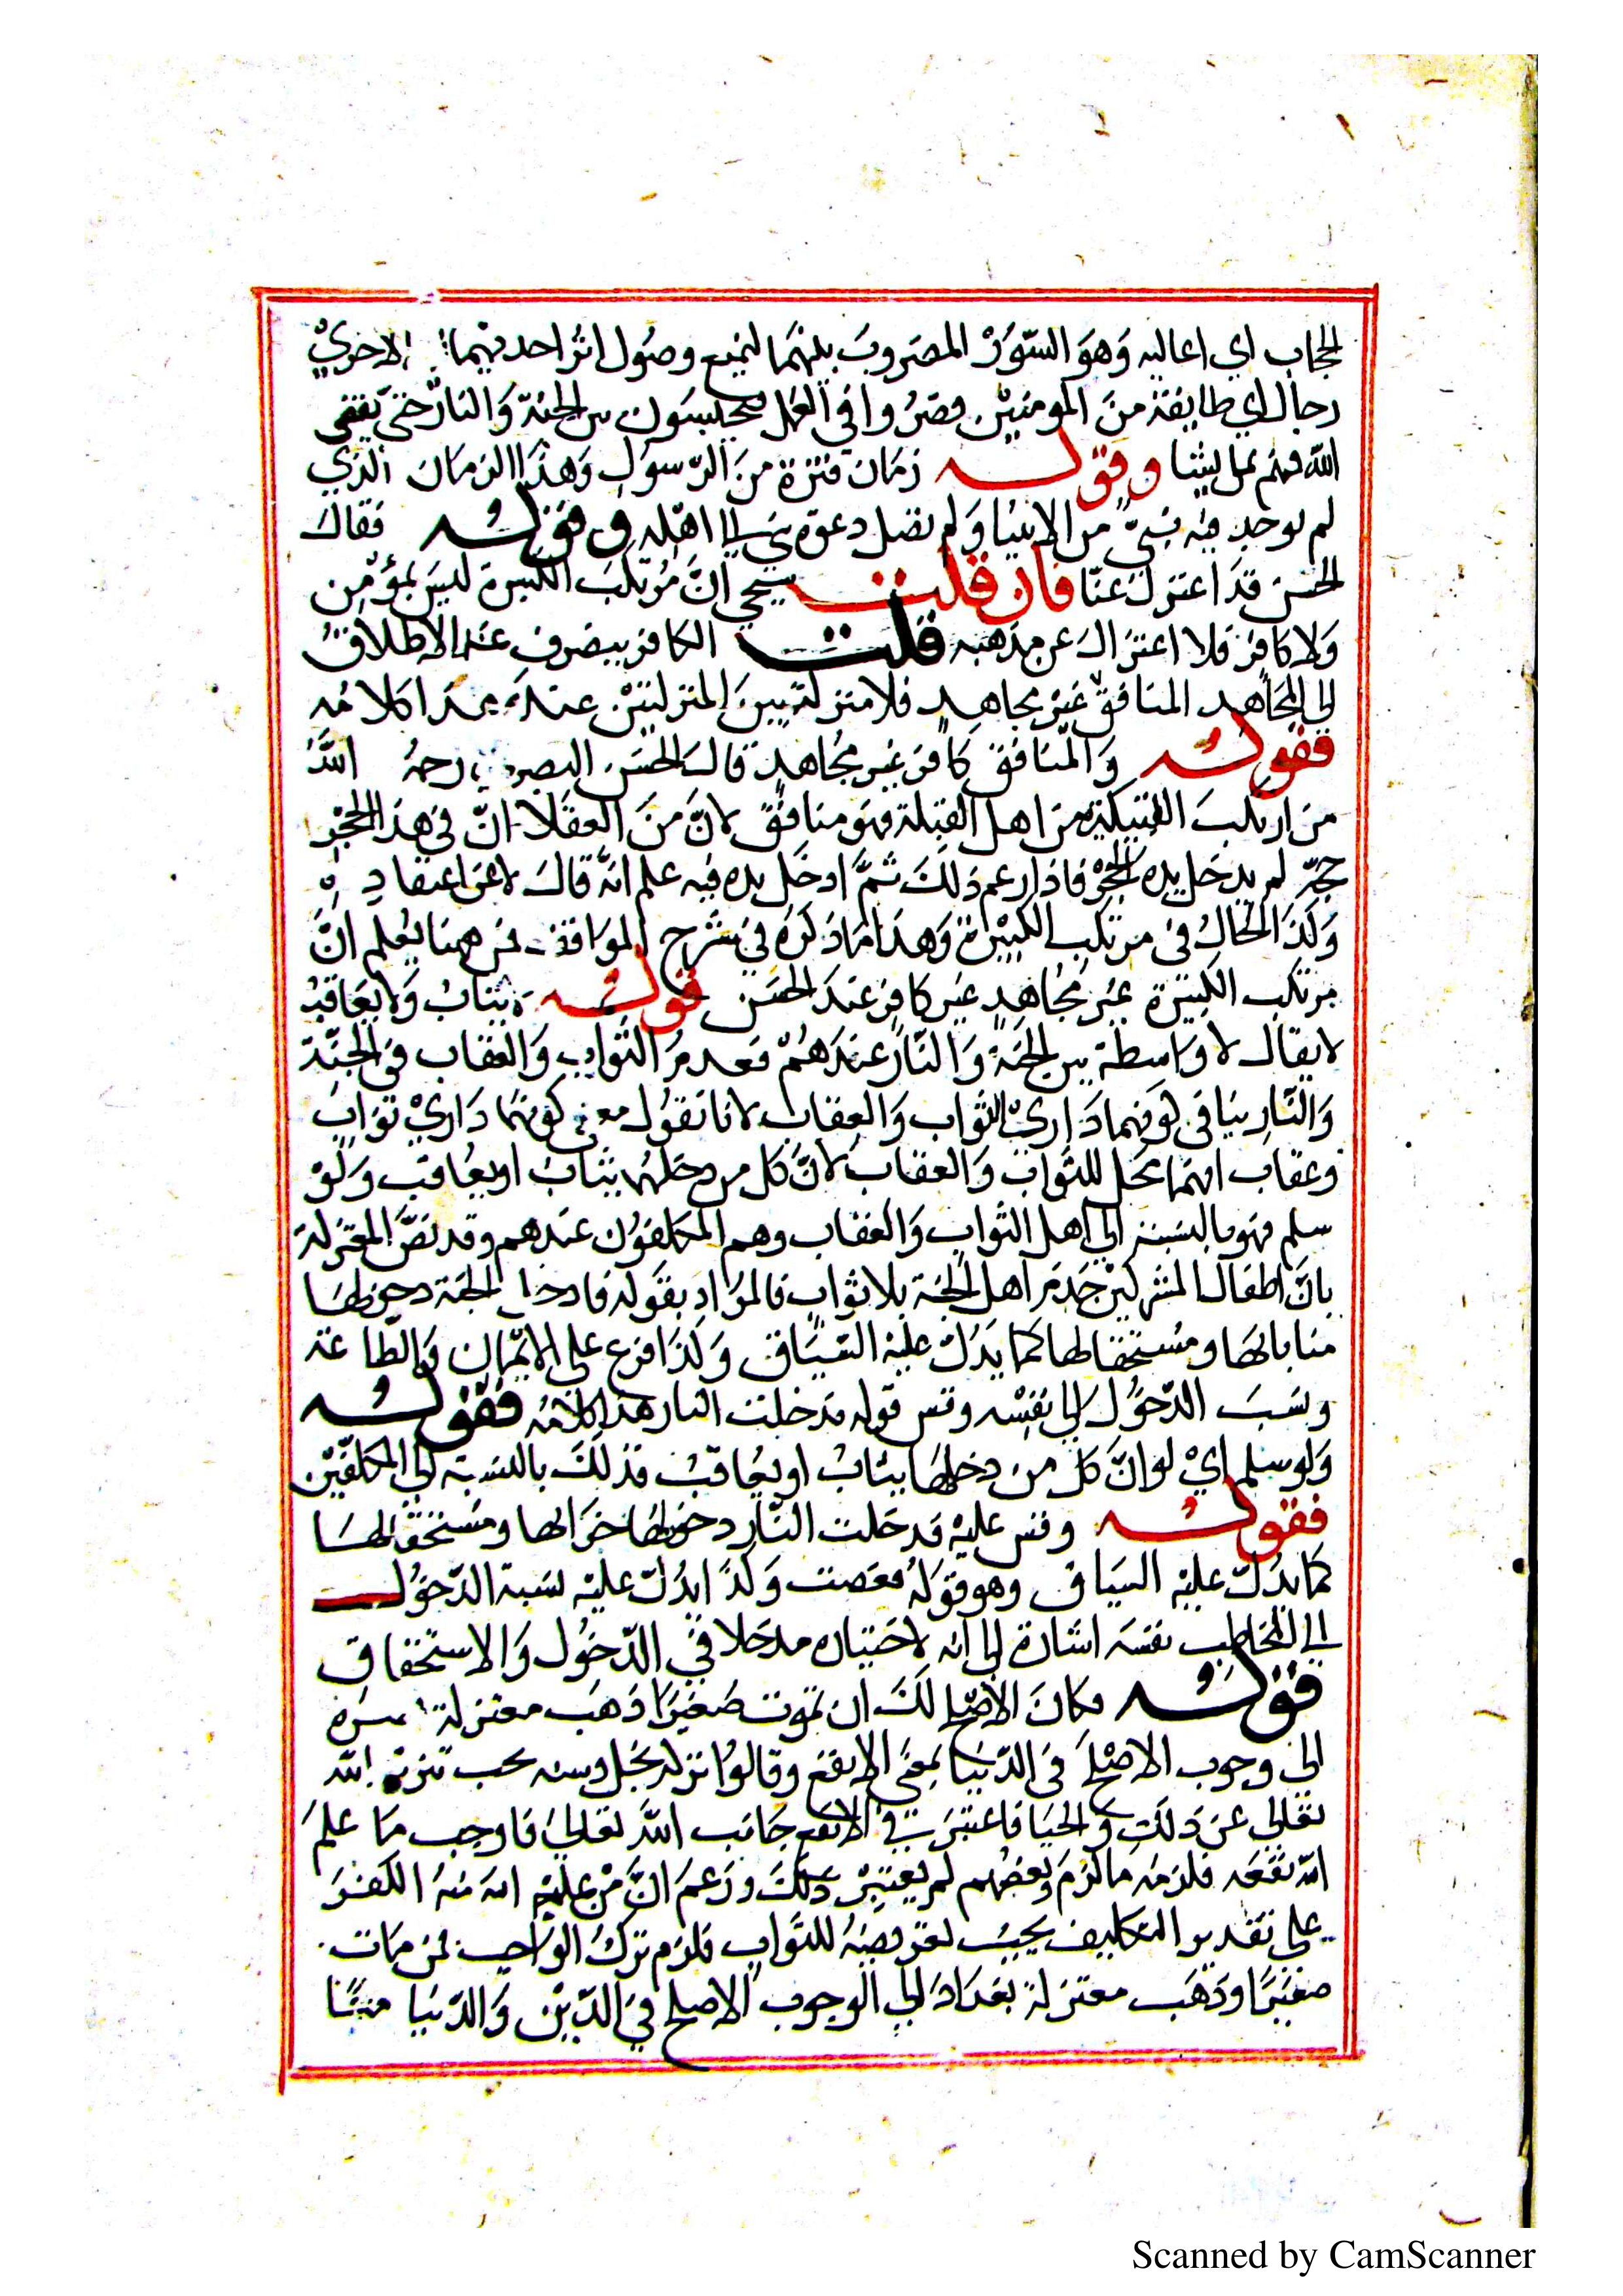 الحجاب اي اعاليه وَهوَ السّوُرْ المضروبَ بينهمَا ليمنع وصُول اثرُ احديهمَا الاخريْ
رجال اي طايفة منَ المومنيْن قصرُوا في العمل فيحبسَون بين الجنة وَالنارْ حَتيّ يقضي
اللّه فيهم بما يشا وقوله زمَان فترَة منَ الرّسوُلِ وَهذَا الزمَان الذي
لم يوجد فيْه نبيّ من الانبيا وَلم تصل دعوَة نبي الى اهْله وقوله فقالَ
الحَسن قد اعتزلَ عنّا فان قلت سيجي انّ مُرتكبَ الكبيرة ليسَ بمؤمن
وَلا كافر فلا اعتزالَ عن مذهبه قلت الكافر ينصَرف عند الاطلاق
الى المجَاهِد المنافق غيْر مجاهِد فلا منزلة بينَ المنزلتيْن عندَه هذَا كلامُه
فقوله وَالمنَافق كافر غيْر مُجاهد قالَ الحسَن البصري رحمهُ اللّهُ
من ارتكبَ الكبيرة من اهل القبلة فهوَ منافق لانَّ منَ العقلا انّ في هذا الجحْر
حيّة لم يدخل يده الجحْر فاذا زعم ذلكَ ثمَّ ادخَل يده فيه علم انهُ قالَ لا عن اعتقادٍ
وَكذا الحَالُ في مرتكب الكبيْرة وَهذا مَا ذكرَه في شرْح الموَاقف فمن ههنا يُعلم انَّ
مرتكب الكبيْرة غيْر مُجاهدٍ غيْر كافر عندَ الحسَن قوله يثابُ وَلا يعَاقبُ
لا يقال لا وَاسطة بين الجنة وَالنّار عندَهُمْ فعدمُ الثّوَابِ وَالعقاب في الجنّة
وَالنّار ينَافي كونهما دَاريْ الثوَاب وَالعقاب لانا نقوُل معنى كونهمَا دَاريْ ثوَاب
وعقاب انهمَا محَل للثّوَاب وَالعقابُ لا انَّ كل من دخلهُما يثابُ او يعَاقب وَلوْ
سلم فهو بالنسبة الي اهل الثّواب وَالعقاب وهم المكلفوُن عندهم وقد نصَّ المعتزلة
بانَّ اطفال المشركيْن خدم اهل الجنة بلا ثوابٍ فالمرَاد بقوَله فادخل الجنة دخولهَا
مثابا بهَا ومُستحقا لها كما يدَلّ عليْه السّيَاق وَلذَا فرع على الايمَان وَالطّاعة
ونسَبَ الدّخوُل الي نفسْه وقس قوله فدخلت النار هذا كلامُه فقوله
وَلو سلم ايْ لو انَّ كل من دخلهَا يثابُ او يعُاقبُ فذلكَ بالنسبة الي المكلفيْن
فقوله وقس عليْه فدخلت النّار دخوُلهَا جزَا لها ومُستحقا لهَا
كما يدُلّ عليْه السيَاق وهو قوله فعَصَيت وَلذا يدُلّ عليْه نسبَة الدّخوُل
الى المخاطب نفسَه اشارة الي انّ لاختياره مدخلا في الدّخوُل وَالاستحقاق
قوله فكانَ الاصْلح لكَ ان تموت صَغيرَا ذهَب معتزلة بصرَه
الي وجوب الاصْلح في الدّنيا بمعنى الانفع وقالوُا تركه بخل وسفه يجب تنزيه اللّه
تعَالي عن ذلَك وَالجبَائي اعتبرَ في الانفع جَانب اللّه تعَاليْ فاوجب مَا علمَ
اللّه نفعَه فلزمَه مَا لزمَ وبعضُهم لم يعتبْر ذلكَ وزعَم انَّ منْ علم اللّه منهُ الكفرَ
علي تقدير التكاليف يجبُ تعريضهُ للثوَاب فلزم تركُ الوَاجب فمن مَات
صغيرًا وذهَب معتزلة بغدَادَ الي الوجوب الاصلح في الدّيْن وَالدّنيا معًا
Scanned by CamScanner